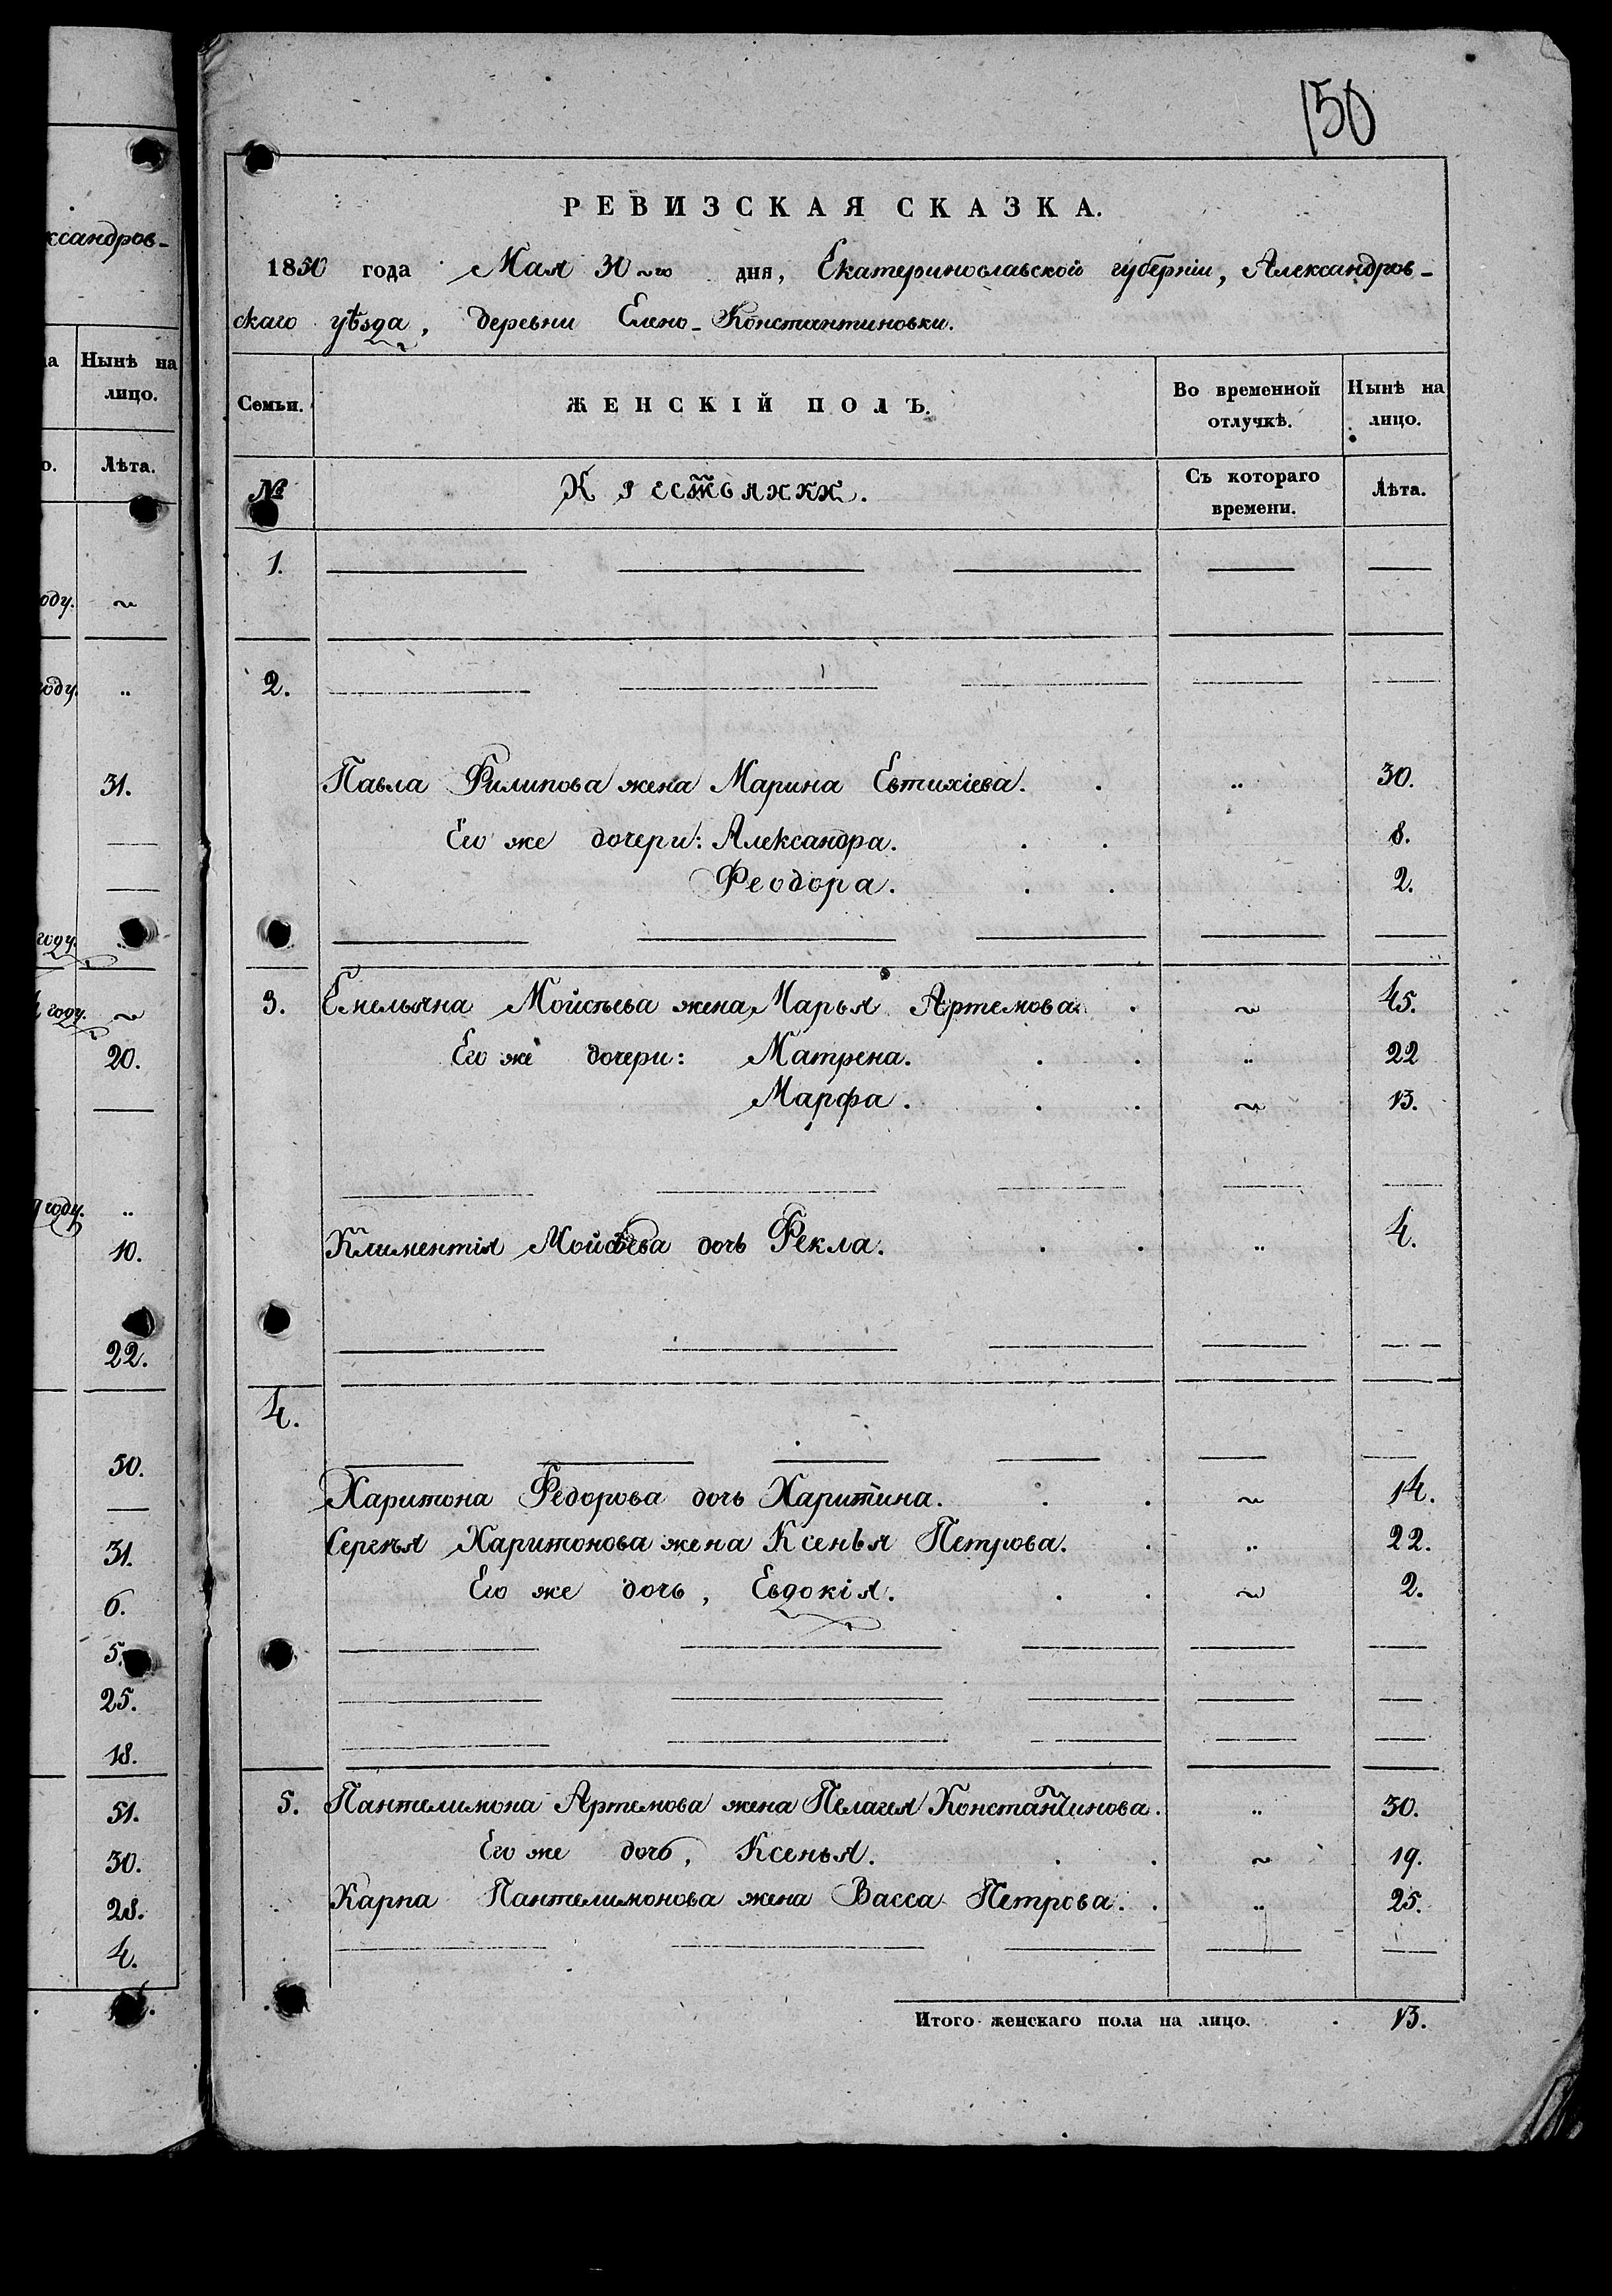 150
РЕВИЗСКАЯ СКАЗКА.
1850 года Мая 30~го дня, Екатеринославской губерніи, Александров-
скаго уѣзда, деревни Елено-Константиновки.
Семьи. ЖЕНСКІЙ ПОЛЪ. Во временной отлучкѣ. Нынѣ на лицо.
№ Крестьянки. Съ котораго времени. Лѣта.
1.
2.
Павла Филипова жена Марина Евтихіева. „ 30.
Его же дочери: Александра. 8.
Феодора. 2.
3. Емельяна Мойсѣева жена Марья Артемова. ~ 45.
Его же дочери: Матрена. „ 22
Марфа. ~ 13.
Климентія Мойсѣева дочь Фекла. „ 4.
4.
Харитона Федорова дочь Харитина. ~ 14.
Сергѣя Харитонова жена Ксенья Петрова. „ 22.
Его же дочь, Евдокія. ~ 2.
5. Пантелимона Артемова жена Пелагея Константинова. „ 30.
Его же дочь, Ксенья. ~ 19.
Карпа Пантелимонова жена Васса Петрова. „ 25.
Итого женскаго пола на лицо. 13.
ксандров-
Нынѣ на
лицо.
Лѣта.
оду. ~
году. „
31.
году.
году. ~
20.
году. „
10.
22.
50.
31.
6.
5.
25.
18.
51.
30.
28.
4.